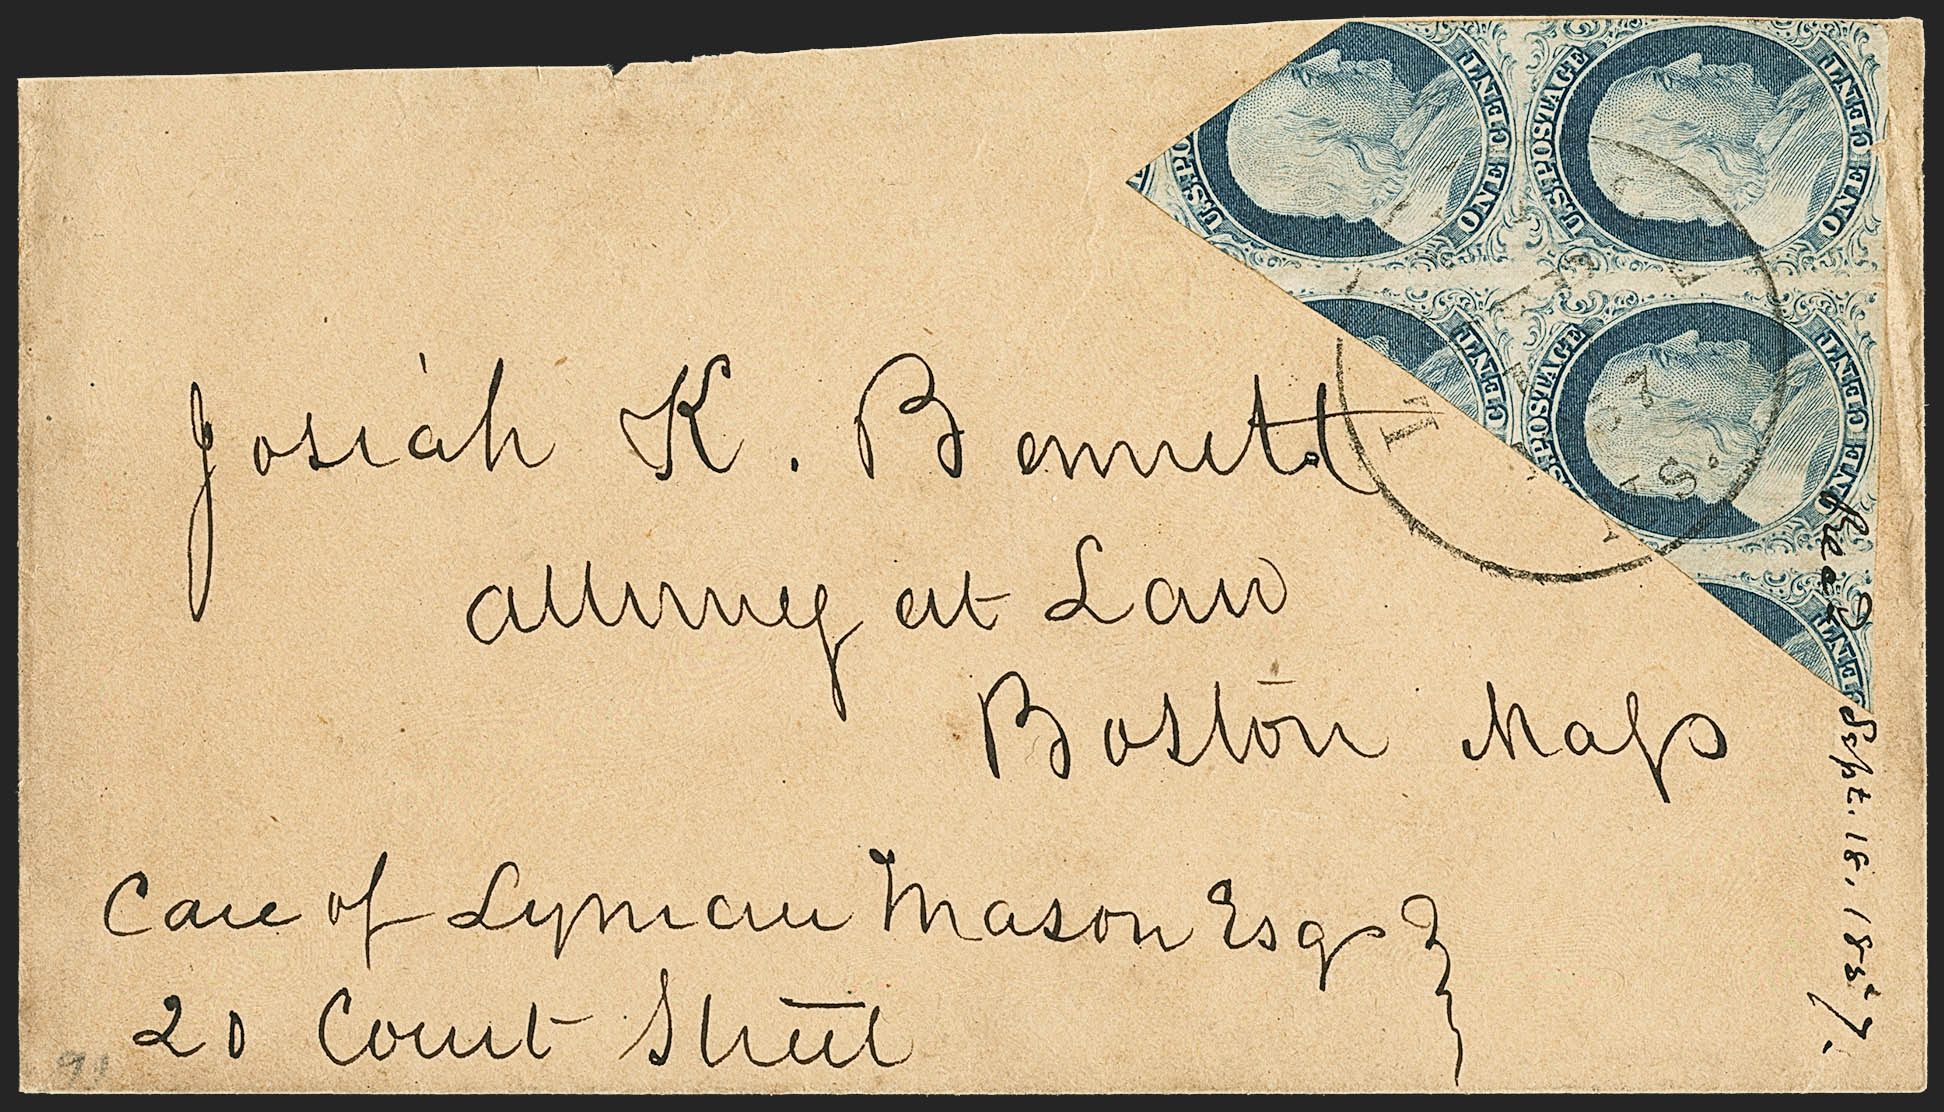 Josiah K. Bennett
Attorney at Law
Boston Mass
Care of Lyman Mason Esq
20 Court Street
Rec'd Sept. 18, 1857.
U.S. POSTAGE
ONE CENT
U.S. POSTAGE
ONE CENT
U.S. POSTAGE
ONE CENT
CENT
CENT
SEP
MS.
91